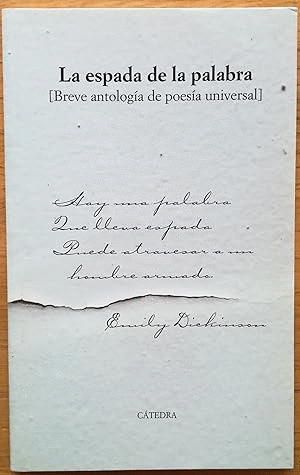 La espada de la palabra
[Breve antología de poesía universal]
Hay una palabra
Que lleva espada
Puede atravesar a un
hombre armado.
Emily Dickinson
CÁTEDRA